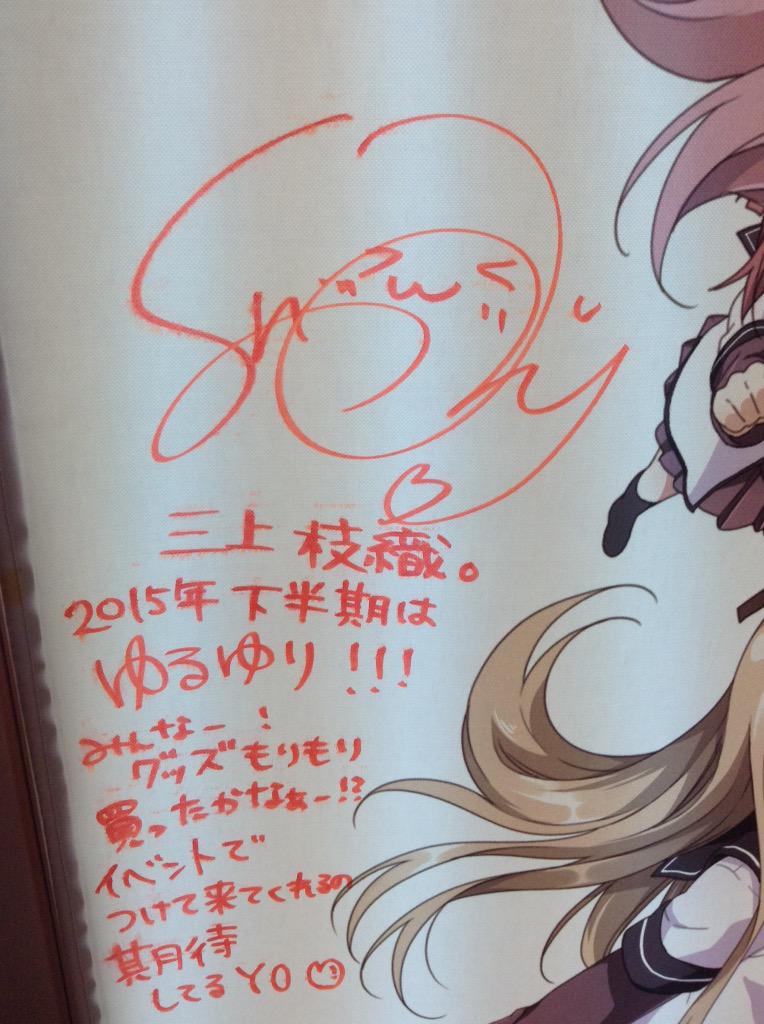 三上 枝織。
2015年 下半期は
ゆるゆり!!!
みんなー!
グッズもりもり
買ったかなぁー!?
イベントで
つけて来てくれるの
期待
してるYO